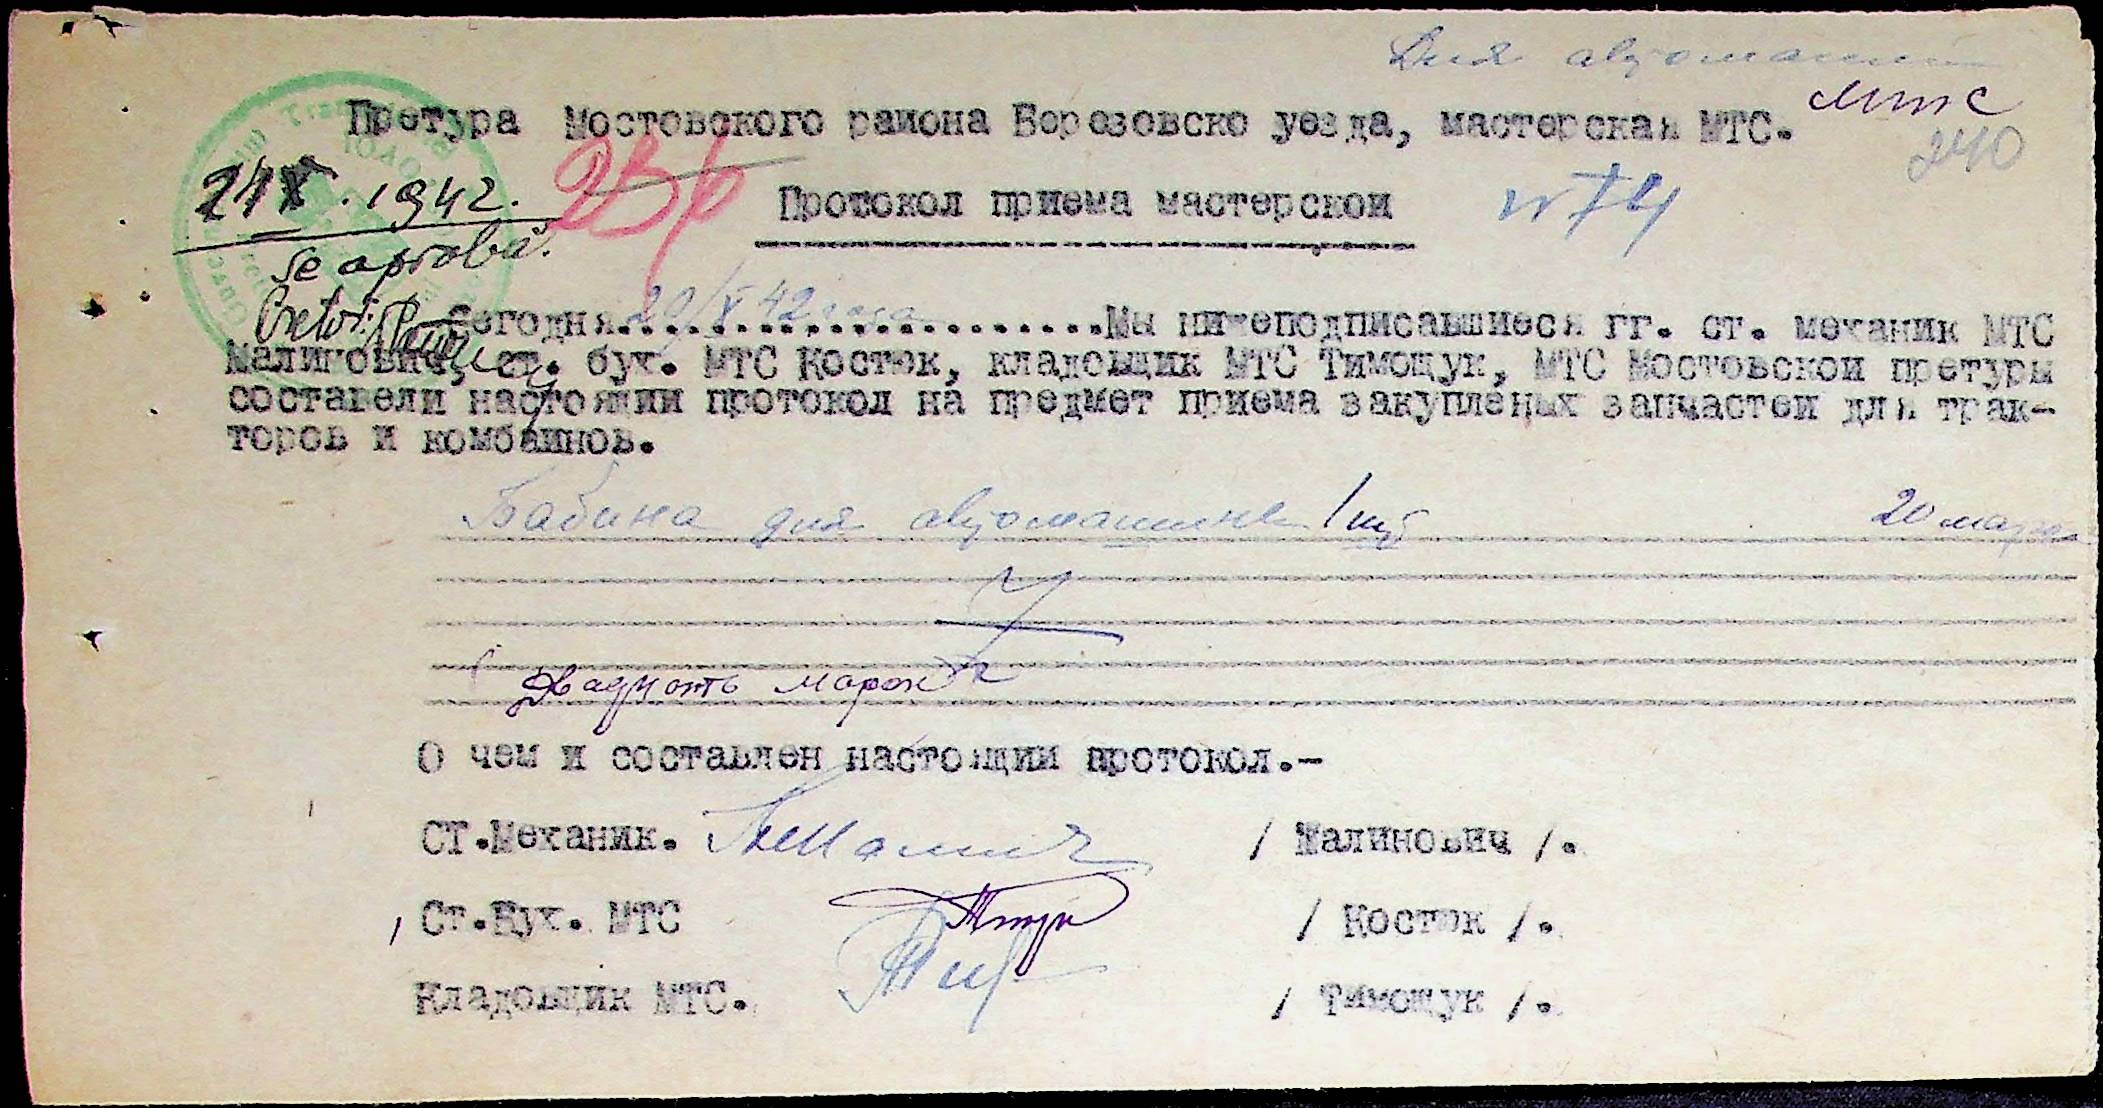 Для автомашин
мтс
240
Претура Мостовского раиона Березовско уезда, мастерская МТС.
24 X. 1942.
236
Протокол приема мастерскои
N 74
Se aprobă.
Pretor:
Сегодня 20/X 42 года Мы нижеподписавшиеся гг. ст. механик МТС
Малинович, ст. бух. МТС Костюк, кладовщик МТС Тимощук, МТС Мостовскои претуры
составели настоящии протокол на предмет приема закупленых запчастеи для трак-
торов и комбаинов.
Бабина для автомашины 1 шт 20 марок
Двадцать марок
О чем и составлен настоящии протокол.-
Ст.Механик. / Малинович /.
Ст.Бух. МТС / Костюк /.
Кладовщик МТС. / Тимощук /.